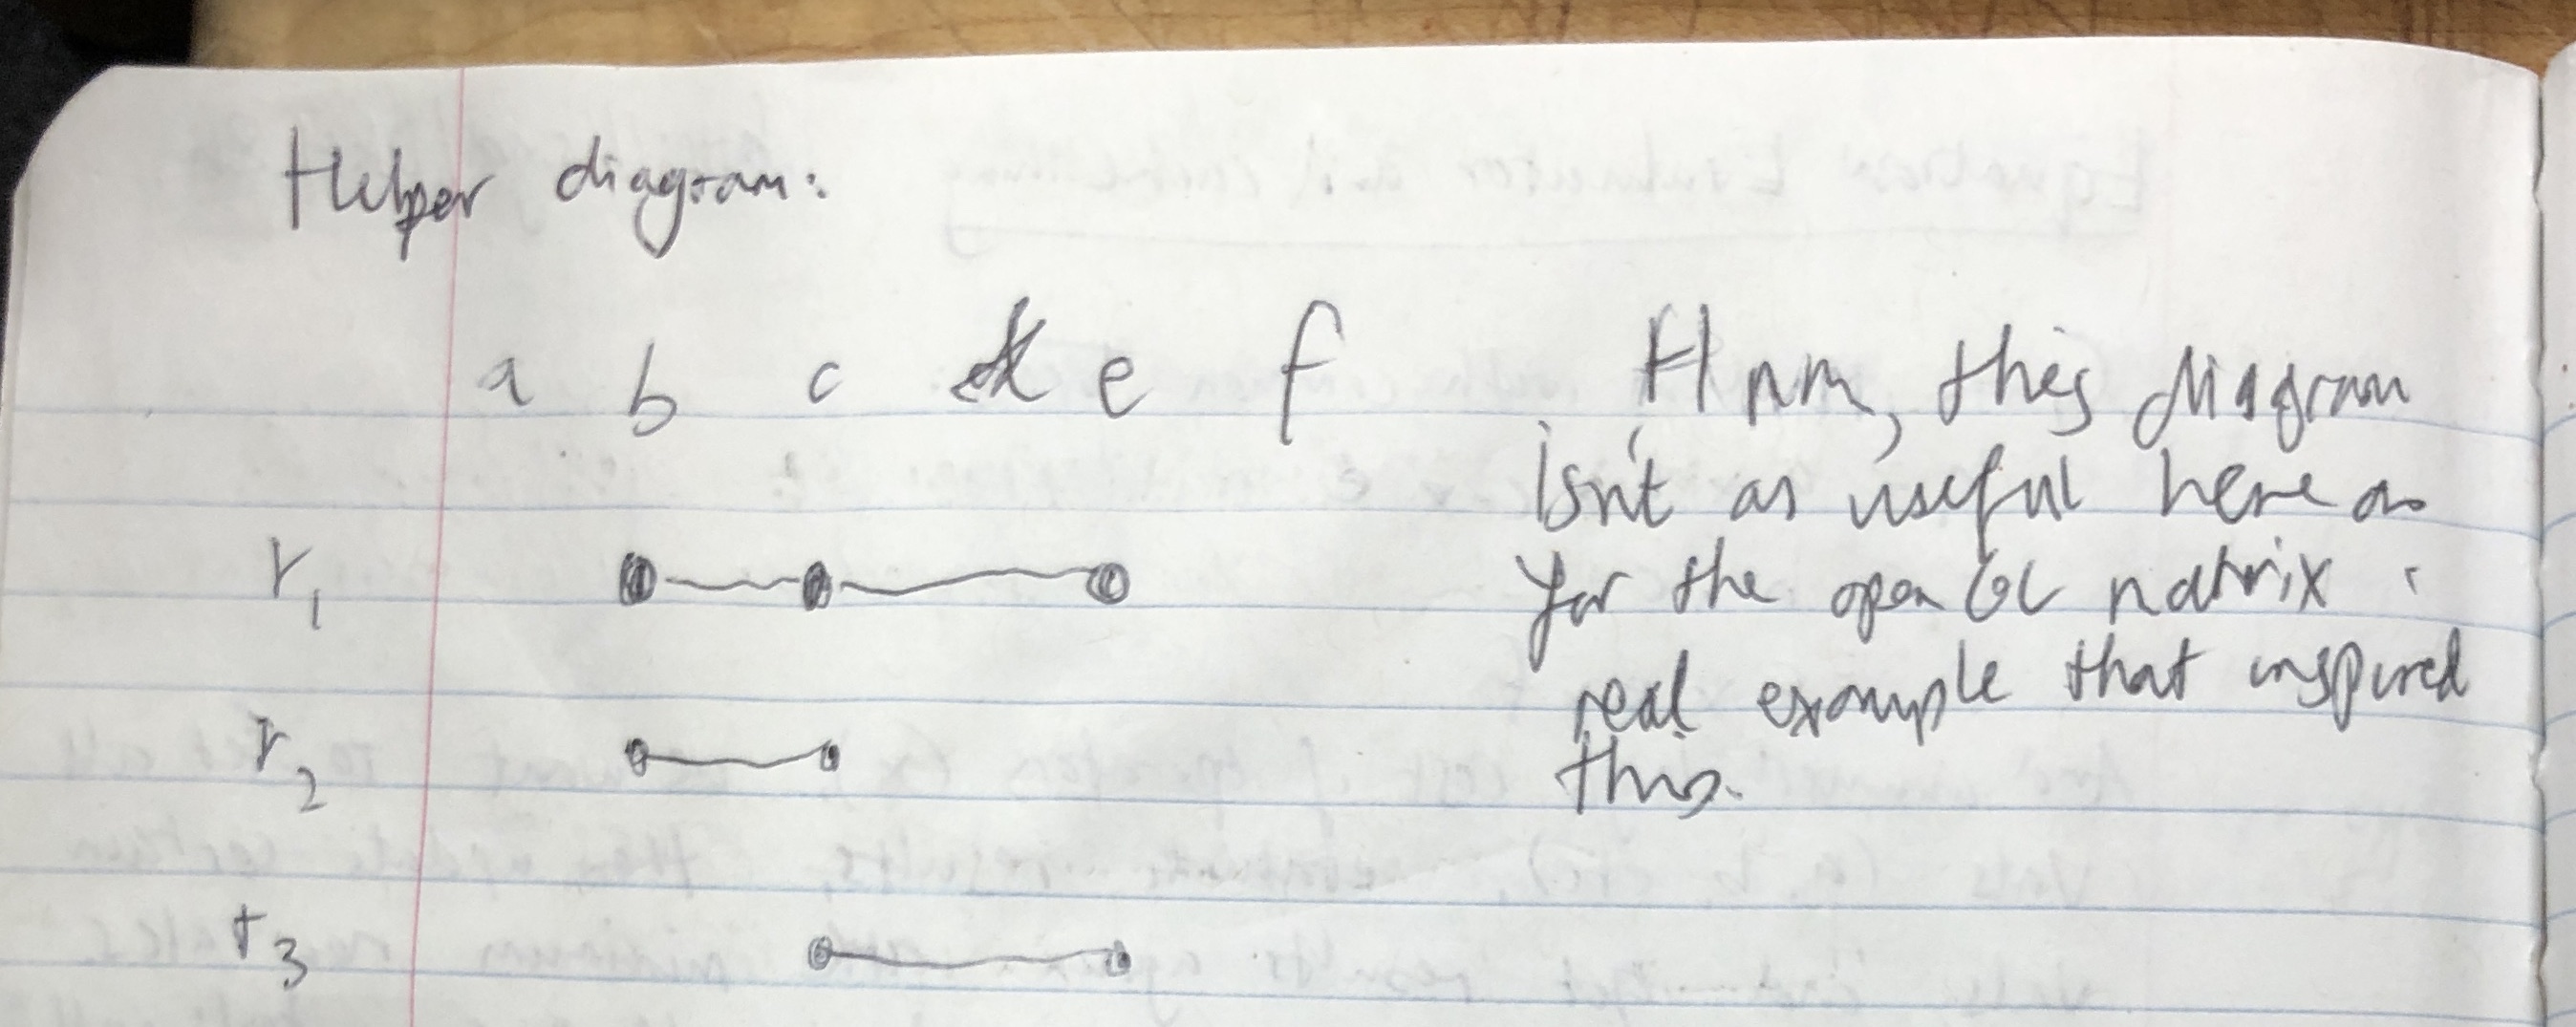 Helper diagram:
a b c d e f
Hmm, this diagram
isn't as useful here as
for the open GL matrix
real example that inspired
this.
r1
r2
r3